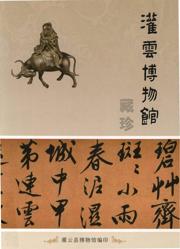 灌雲博物館
藏珍
碧艸齊
斑〻小雨
春泥溼
城中甲
弟連雲
灌云县博物馆编印